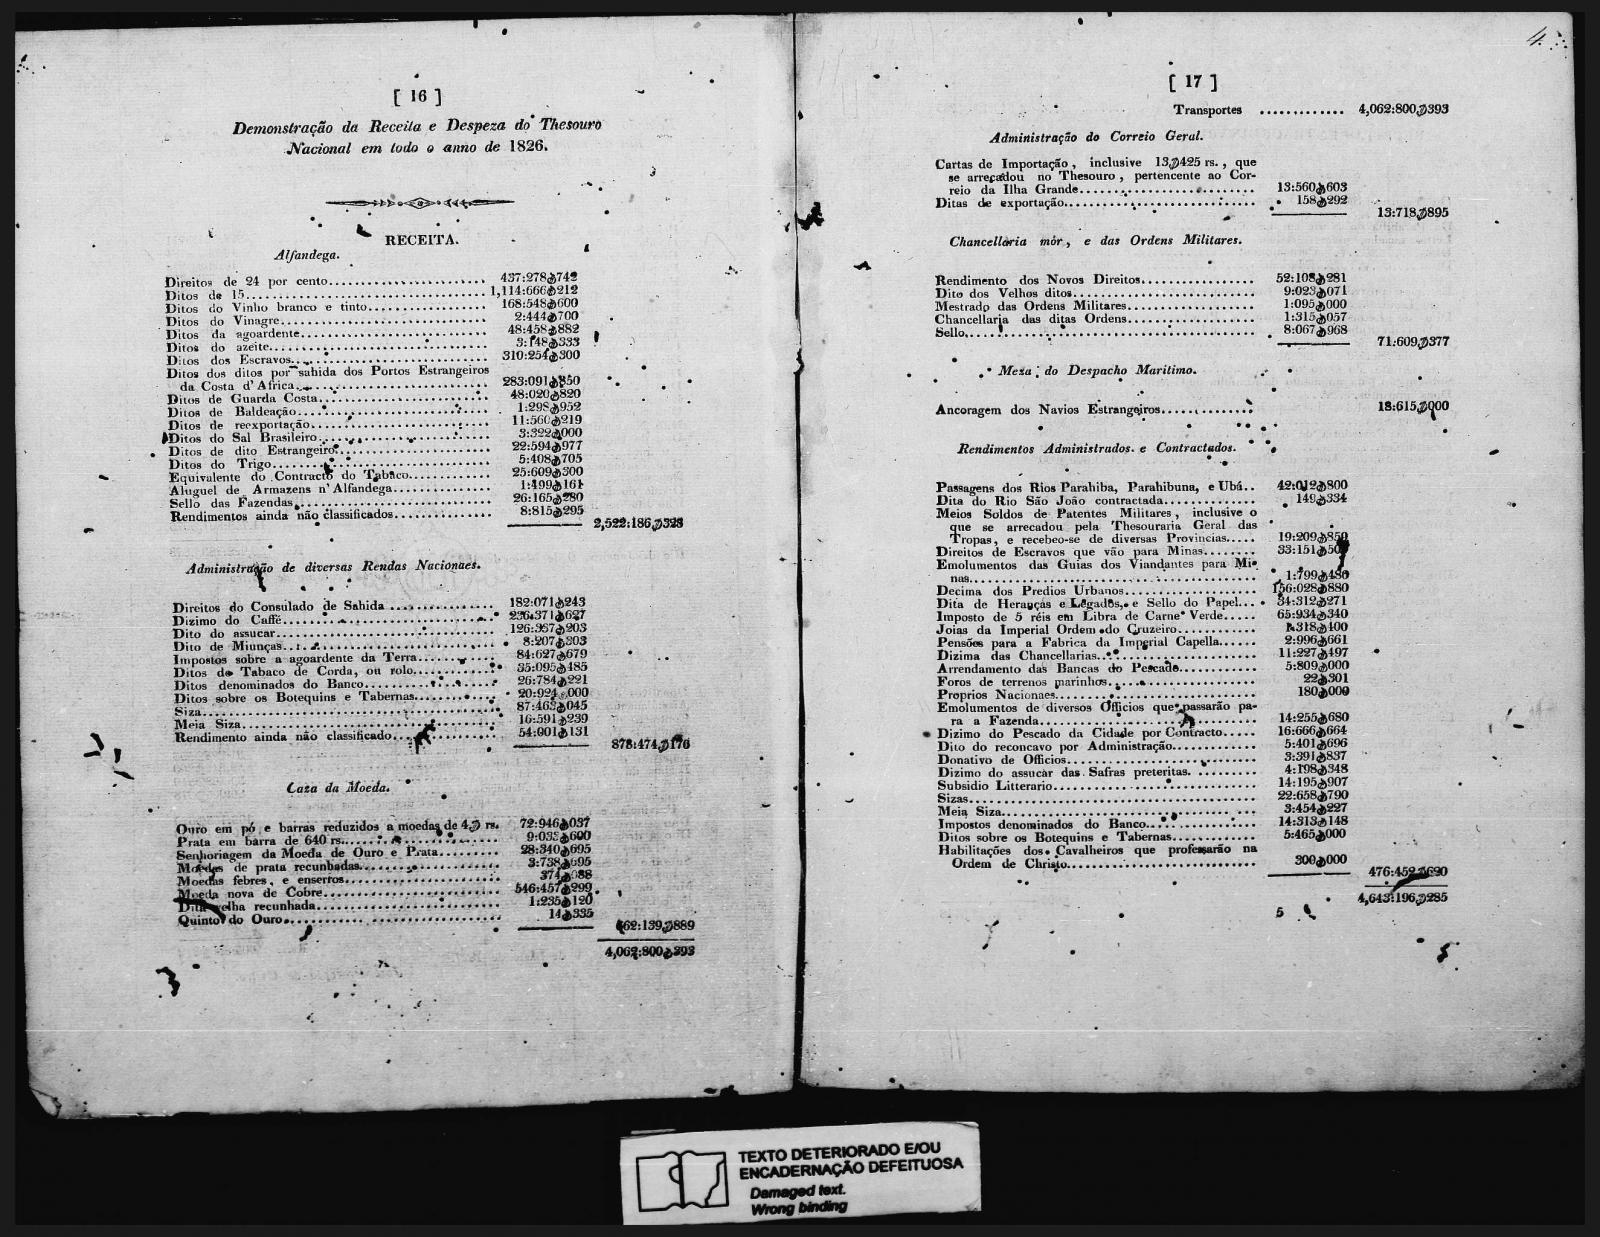 [ 16 ]
Demonstração da Receita e Despeza do Thesouro
Nacional em todo o anno de 1826.
RECEITA.
Alfandega.
Direitos de 24 por cento 437:278$742
Ditos de 15 1,114:666$212
Ditos do Vinho branco e tinto 168:548$600
Ditos do Vinagre 2:444$700
Ditos da agoardente 48:458$882
Ditos do azeite 3:148$333
Ditos dos Escravos 310:254$300
Ditos dos ditos por sahida dos Portos Estrangeiros
da Costa d'Africa 283:091$850
Ditos de Guarda Costa 48:020$820
Ditos de Baldeação 1:298$952
Ditos de reexportação 11:560$219
Ditos do Sal Brasileiro 3:322$000
Ditos de dito Estrangeiro 22:594$977
Ditos do Trigo 5:408$705
Equivalente do Contracto do Tabaco 25:609$300
Aluguel de Armazens n'Alfandega 1:499$161
Sello das Fazendas 26:165$280
Rendimentos ainda não classificados 8:815$295
2,522:186$328
Administração de diversas Rendas Nacionaes.
Direitos do Consulado de Sahida 182:071$243
Dizimo do Caffé 236:371$627
Dito do assucar 126:367$203
Dito de Miunças 8:207$303
Impostos sobre a agoardente da Terra 84:627$679
Ditos do Tabaco de Corda, ou rolo 35:095$485
Ditos denominados do Banco 26:784$221
Ditos sobre os Botequins e Tabernas 20:924$000
Siza 87:463$045
Meia Siza 16:591$239
Rendimento ainda não classificado 54:001$131
878:474$176
Caza da Moeda.
Ouro em pó e barras reduzidos a moedas de 4$ rs. 72:946$037
Prata em barra de 640 rs. 9:033$600
Senhoriagem da Moeda de Ouro e Prata 28:340$695
Moedas de prata recunhadas 3:738$695
Moedas febres, e ensertos 374$088
Moeda nova de Cobre 546:457$299
Dita velha recunhada 1:235$120
Quinto do Ouro 14$335
662:139$889
4,062:800$393
[ 17 ]
Transportes 4,062:800$393
Administração do Correio Geral.
Cartas de Importação, inclusive 13$425 rs., que
se arrecadou no Thesouro, pertencente ao Cor-
reio da Ilha Grande 13:560$603
Ditas de exportação 158$292
13:718$895
Chancellaria mór, e das Ordens Militares.
Rendimento dos Novos Direitos 52:108$281
Dito dos Velhos ditos 9:023$071
Mestrado das Ordens Militares 1:095$000
Chancellaria das ditas Ordens 1:315$057
Sello 8:067$968
71:609$377
Meza do Despacho Maritimo.
Ancoragem dos Navios Estrangeiros 18:615$000
Rendimentos Administrados e Contractados.
Passagens dos Rios Parahiba, Parahibuna, e Ubá 42:012$800
Dita do Rio São João contractada 149$334
Meios Soldos de Patentes Militares, inclusive o
que se arrecadou pela Thesouraria Geral das
Tropas, e recebeo-se de diversas Provincias 19:209$850
Direitos de Escravos que vão para Minas 33:151$50
Emolumentos das Guias dos Viandantes para Mi-
nas 1:799$480
Decima dos Predios Urbanos 156:028$880
Dita de Heranças e Legados, e Sello do Papel 34:312$271
Imposto de 5 réis em Libra de Carne Verde 65:934$340
Joias da Imperial Ordem do Cruzeiro 318$400
Pensões para a Fabrica da Imperial Capella 2:996$661
Dizima das Chancellarias 11:227$497
Arrendamento das Bancas do Pescado 5:809$000
Foros de terrenos marinhos 22$301
Proprios Nacionaes 180$000
Emolumentos de diversos Officios que passarão pa-
ra a Fazenda 14:255$680
Dizimo do Pescado da Cidade por Contracto 16:666$664
Dito do reconcavo por Administração 5:401$696
Donativo de Officios 3:391$837
Dizimo do assucar das Safras preteritas. 4:198$348
Subsidio Litterario 14:195$907
Sizas 22:658$790
Meia Siza 3:454$227
Impostos denominados do Banco 14:313$148
Ditos sobre os Botequins e Tabernas 5:465$000
Habilitações dos Cavalheiros que professarão na
Ordem de Christo 300$000
476:452$620
4,643:196$285
5
4.
TEXTO DETERIORADO E/OU
ENCADERNAÇÃO DEFEITUOSA
Damaged text.
Wrong binding